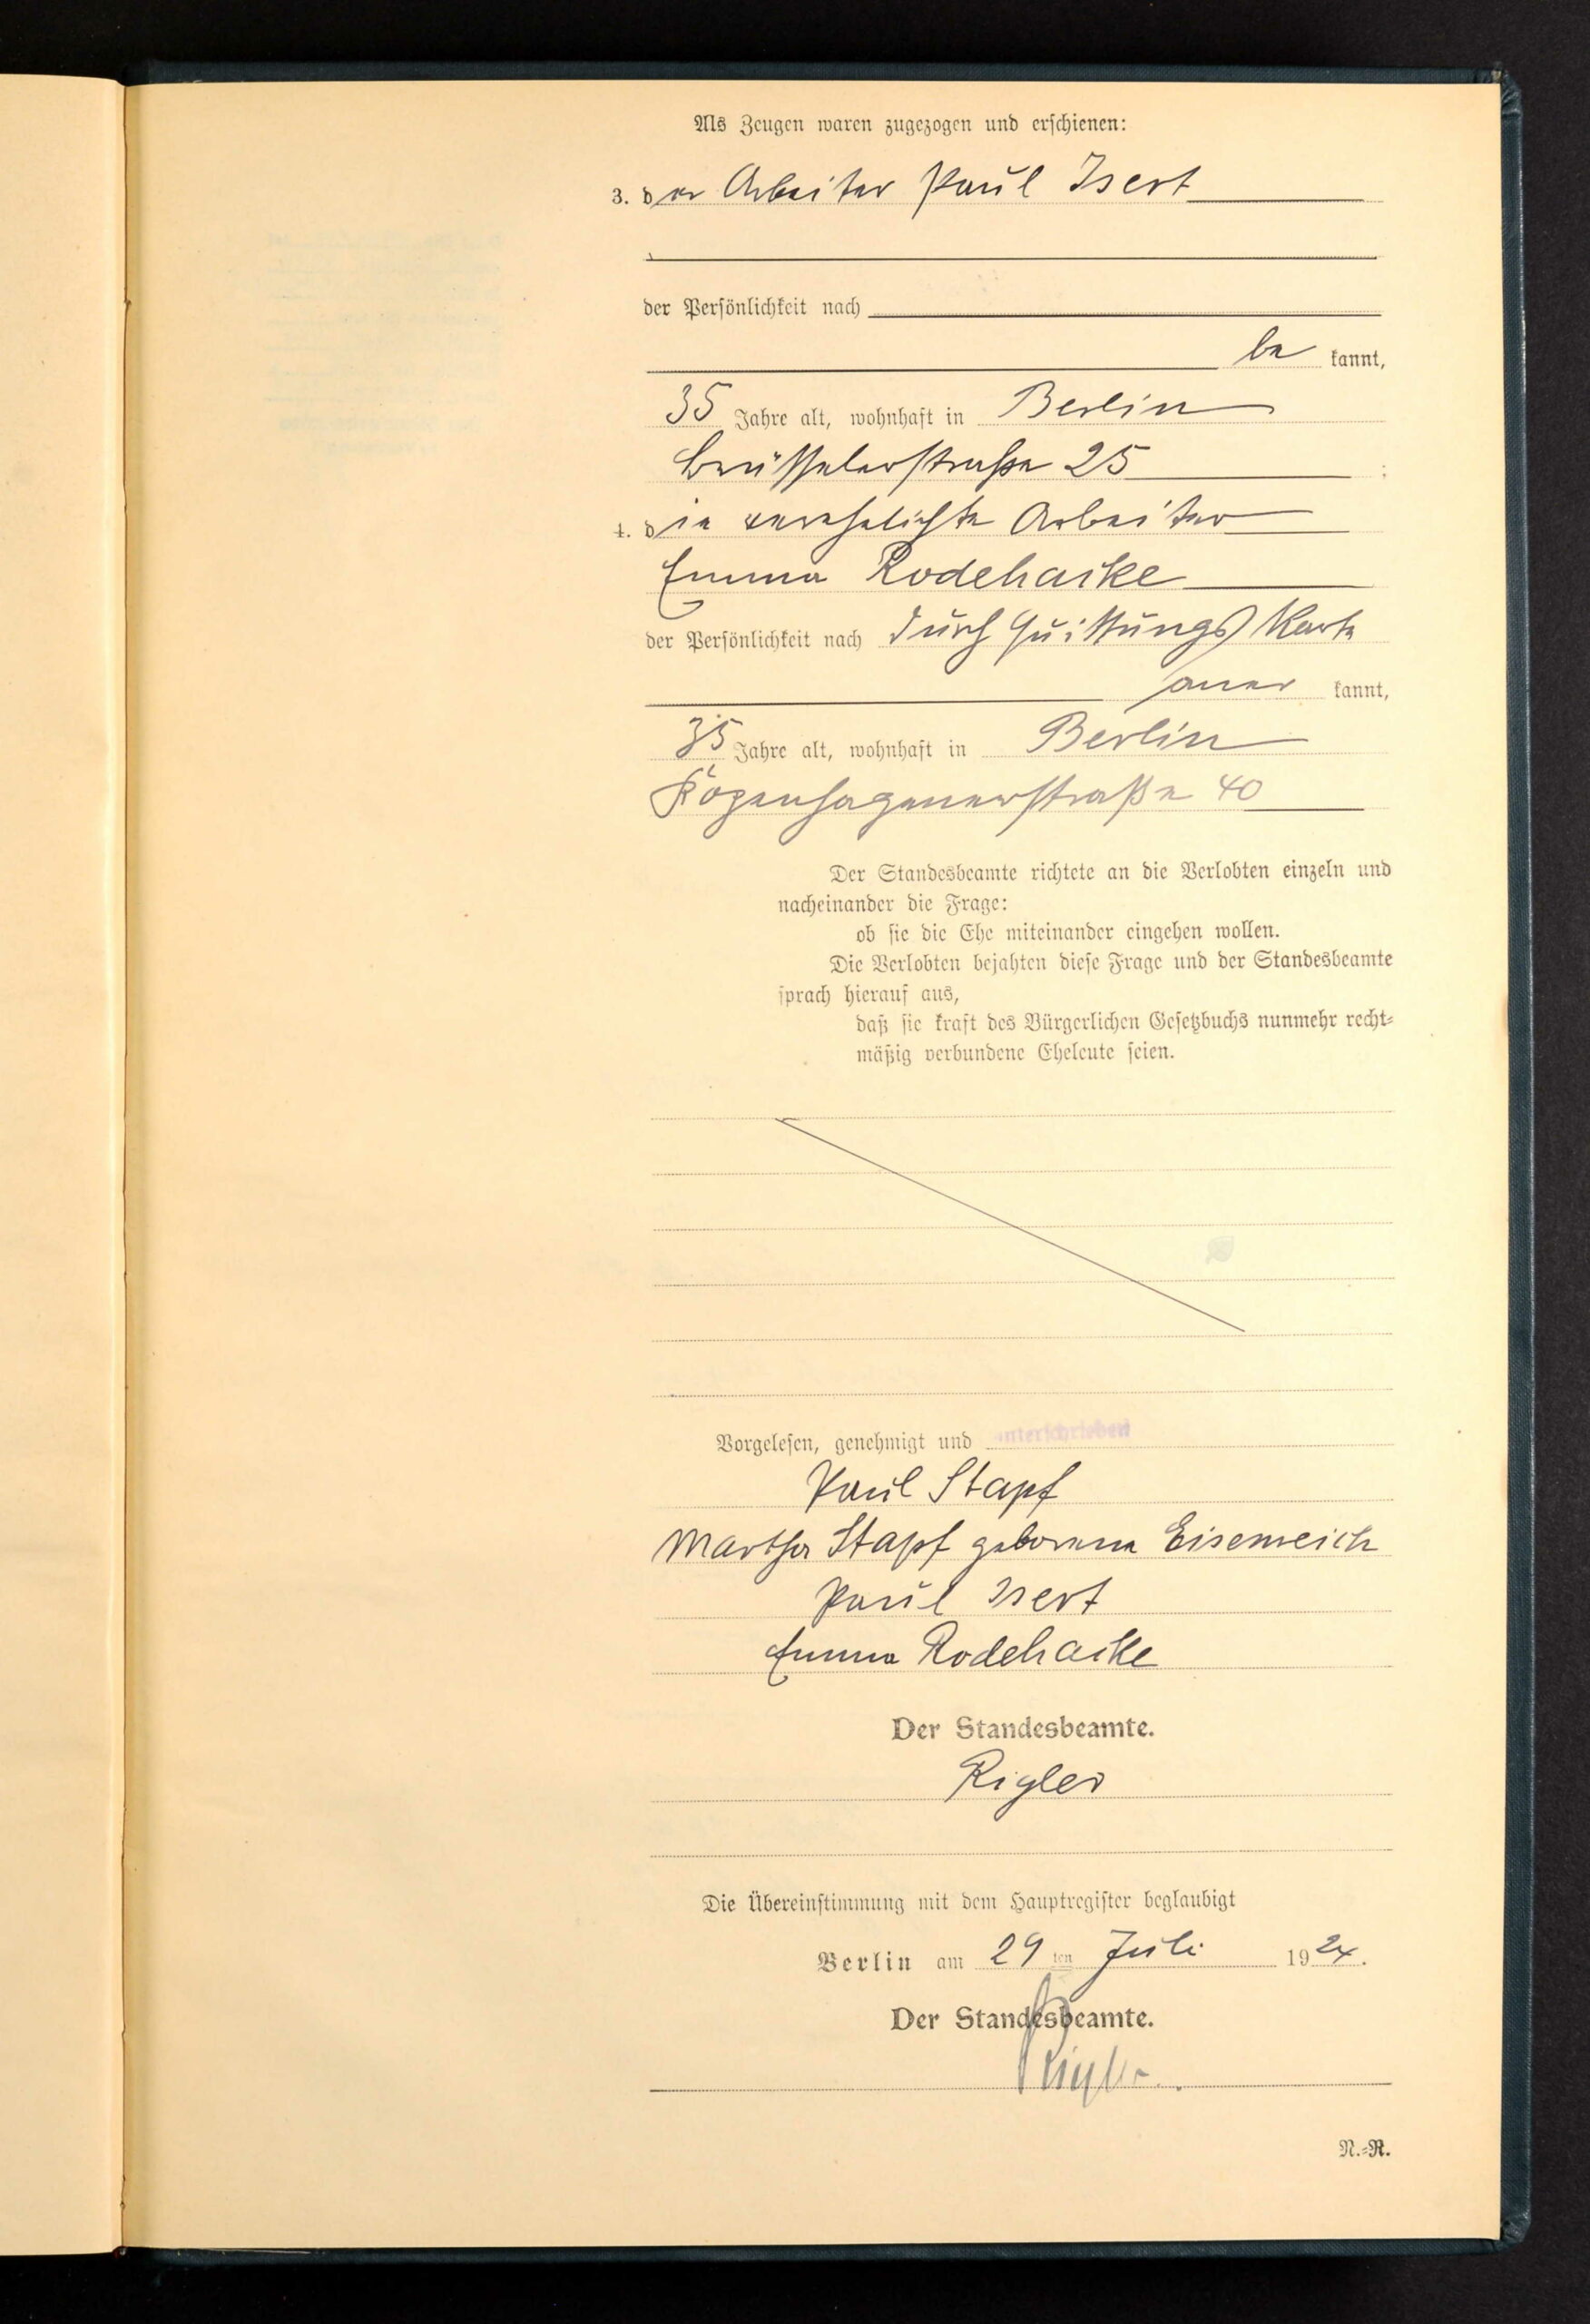 Als Zeugen waren zugezogen und erschienen:
3. der Arbeiter Paul Isert
der Persönlichkeit nach
be kannt,
35 Jahre alt, wohnhaft in Berlin
Brüsselerstraße 25 ;
4. die verehelichte Arbeiter
Emma Rodehacke
der Persönlichkeit nach durch Quittungskarte
aner kannt,
35 Jahre alt, wohnhaft in Berlin
40
Der Standesbeamte richtete an die Verlobten einzeln und
nacheinander die Frage:
ob sie die Ehe miteinander eingehen wollen.
Die Verlobten bejahten diese Frage und der Standesbeamte
sprach hierauf aus,
daß sie kraft des Bürgerlichen Gesetzbuchs nunmehr recht-
mäßig verbundene Eheleute seien.
Vorgelesen, genehmigt und unterschrieben
Paul Stapf
Martha Stapf geborene Eisenreich
Paul Isert
Emma Rodehacke
Der Standesbeamte.
Rigler
Die Übereinstimmung mit dem Hauptregister beglaubigt
Berlin am 29 ten Juli 1924.
Der Standesbeamte.
Rigler
N.-R.